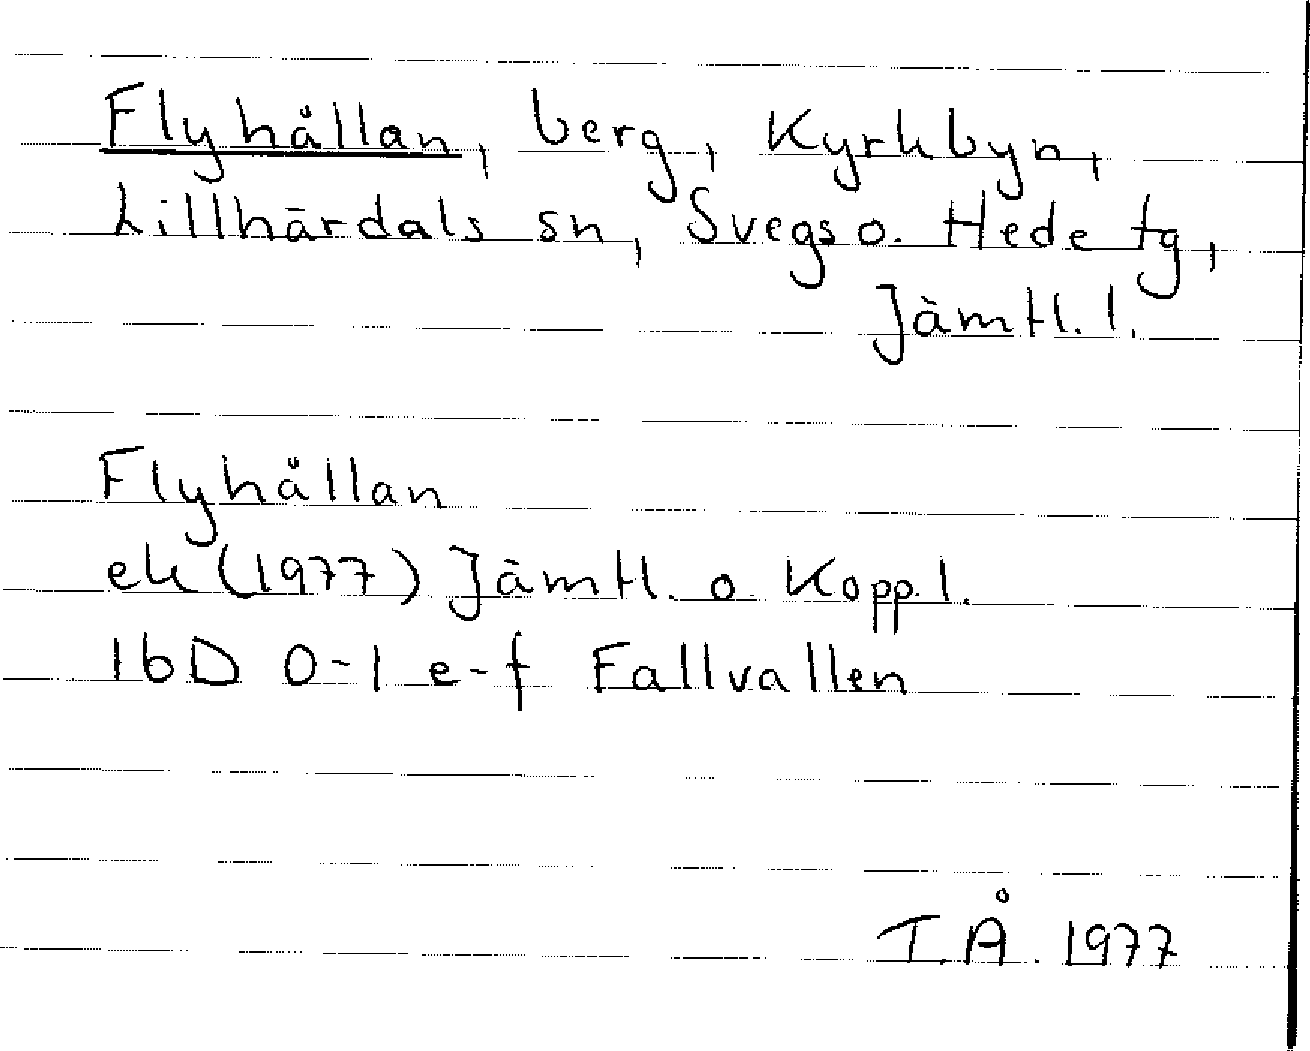 Flyhållan, berg, Kyrkbyn,
Lillhärdals sn, Svegs o. Hede tg,
Jämtl. l.
Flyhållan
ek (1977) Jämtl. o Kopp. l.
16D 0-1 e-f Fallvallen
T.Å. 1977